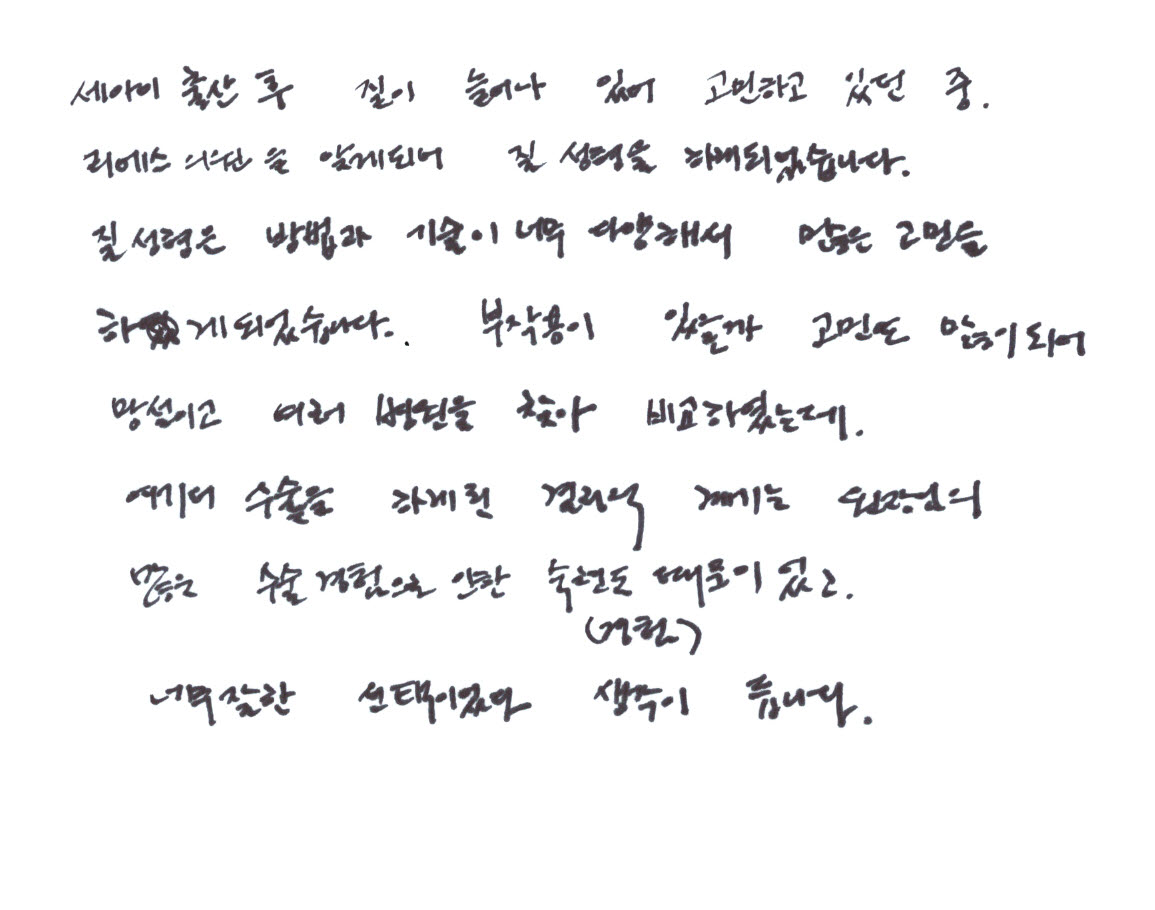 세아이 출산 후 질이 늘어나 있어 고민하고 있던 중.
리에스 의원을 알게되어 질 성형을 하게되었습니다.
질 성형은 방법과 기술이 너무 다양해서 많은 고민을
하게되었습니다. 부작용이 있을까 고민도 많이 되어
망설이고 여러 병원을 찾아 비교하였는데.
여기서 수술을 하게된 결과적 계기는 원장님의
많은 수술경험으로 인한 숙련도 때문이었고.
(경험)
너무잘한 선택이었다 생각이 듭니다.